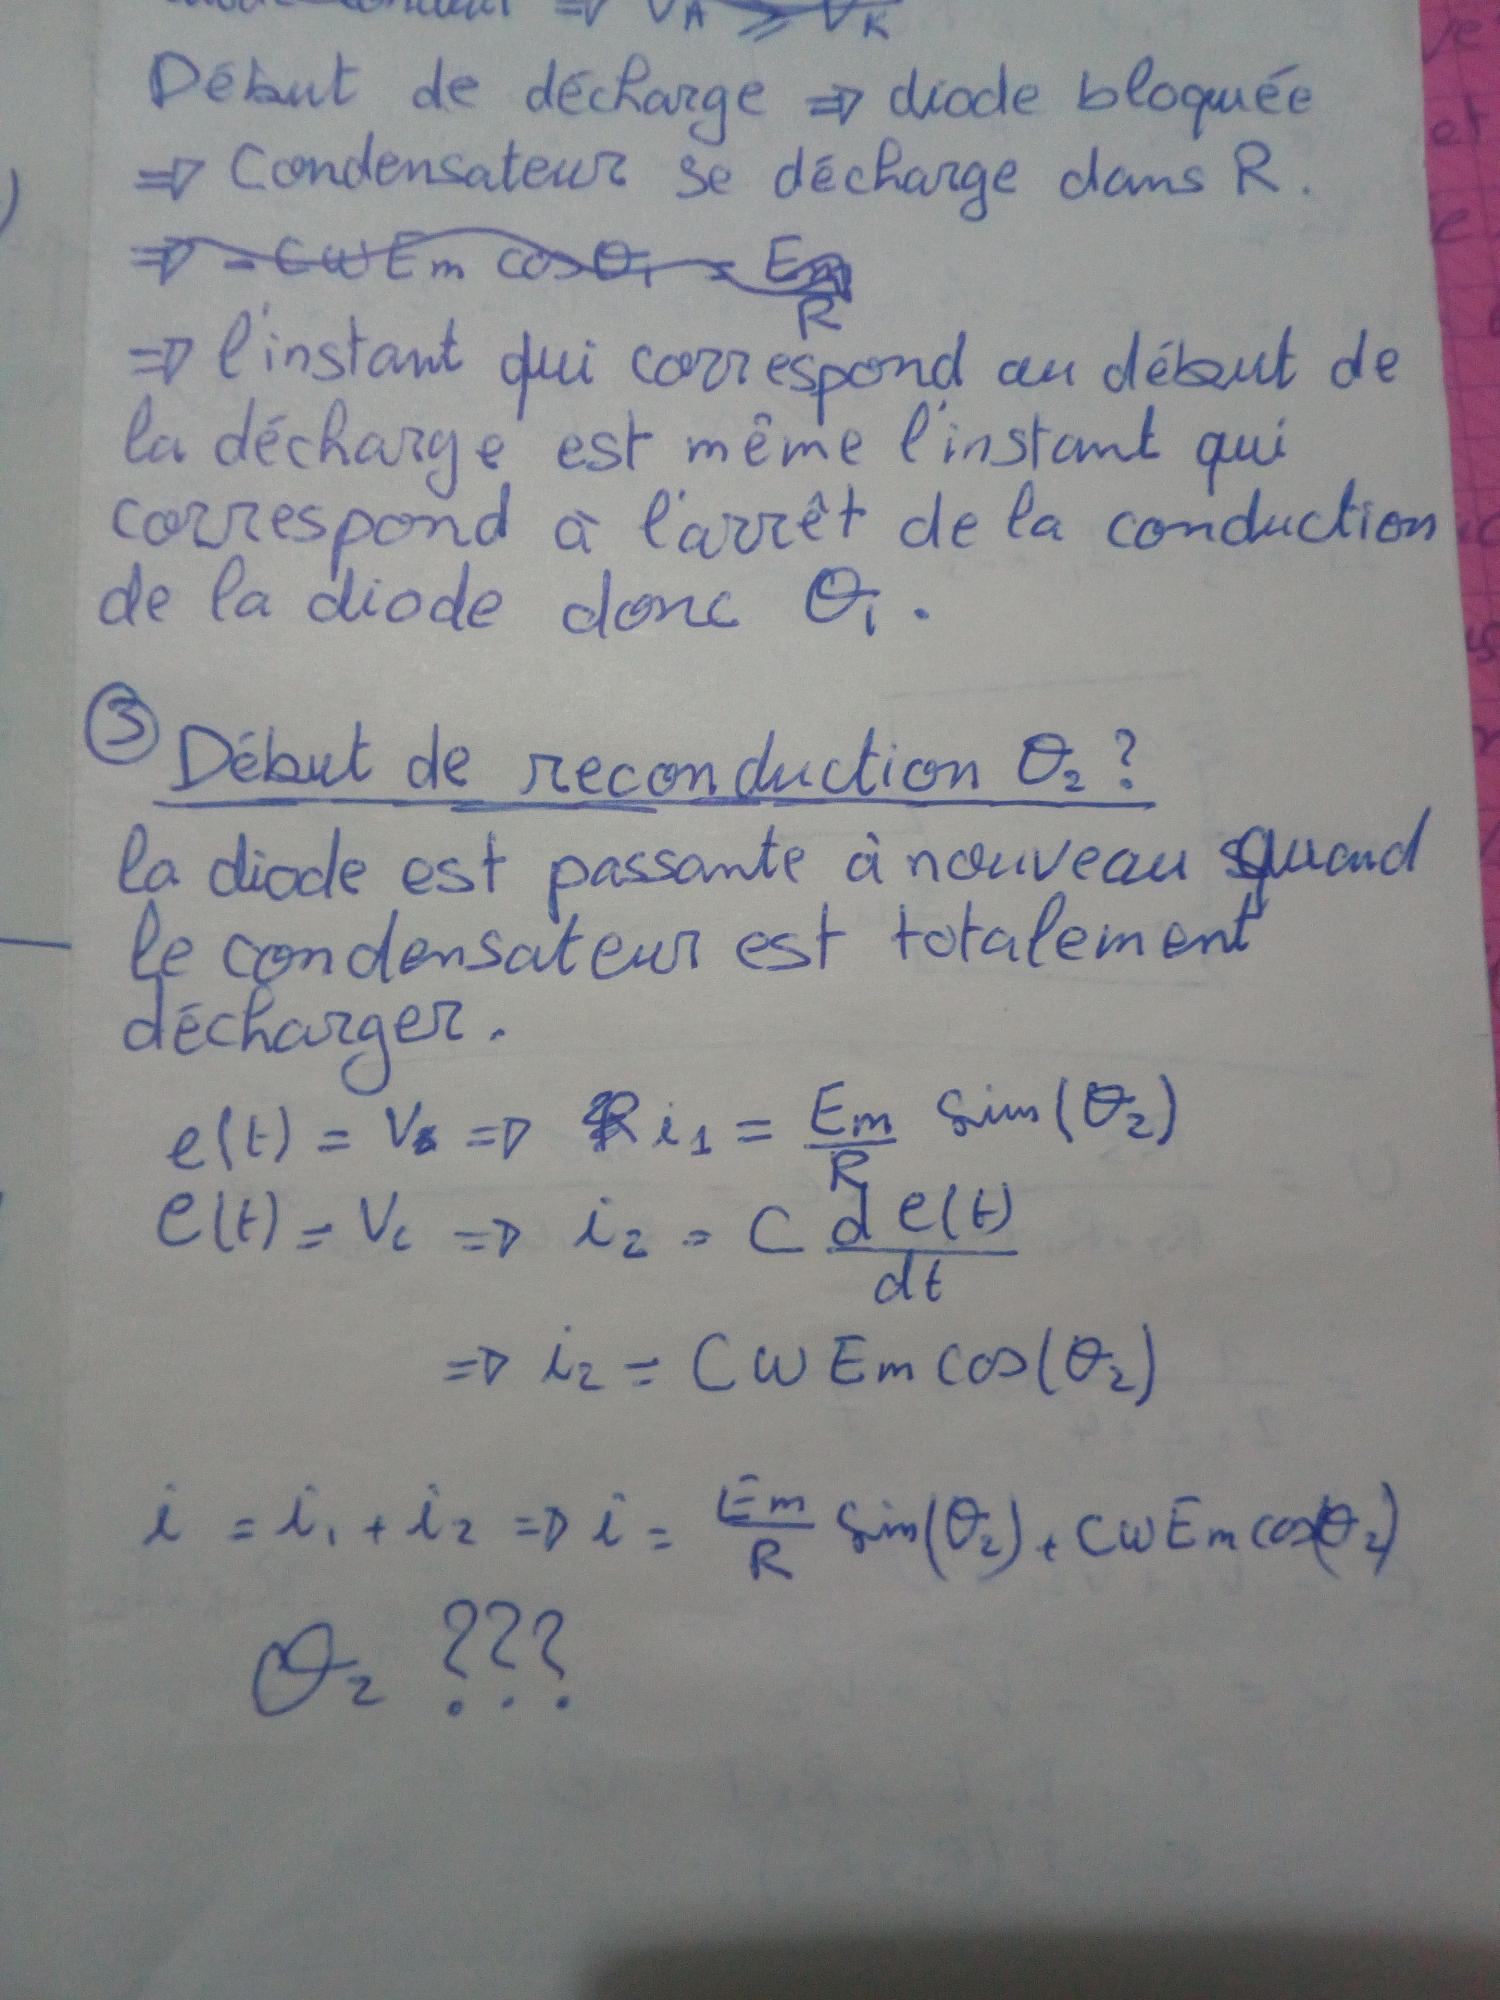 ⇒ VA ⩾ VK
Début de décharge ⇒ diode bloquée
⇒ Condensateur se décharge dans R.
⇒ - CωEm cosθ1 = Em/R
⇒ l'instant qui correspond au début de
la décharge est même l'instant qui
correspond à l'arrêt de la conduction
de la diode donc θ1.
③ Début de reconduction θ2 ?
la diode est passante à nouveau quand
le condensateur est totalement
décharger.
e(t) = Vs ⇒ R i1 = Em/R sin(θ2)
e(t) = Vc ⇒ i2 = C d e(t)/dt
⇒ i2 = CωEm cos(θ2)
i = i1 + i2 ⇒ i = Em/R sin(θ2) + CωEm cos(θ2)
θ2 ???